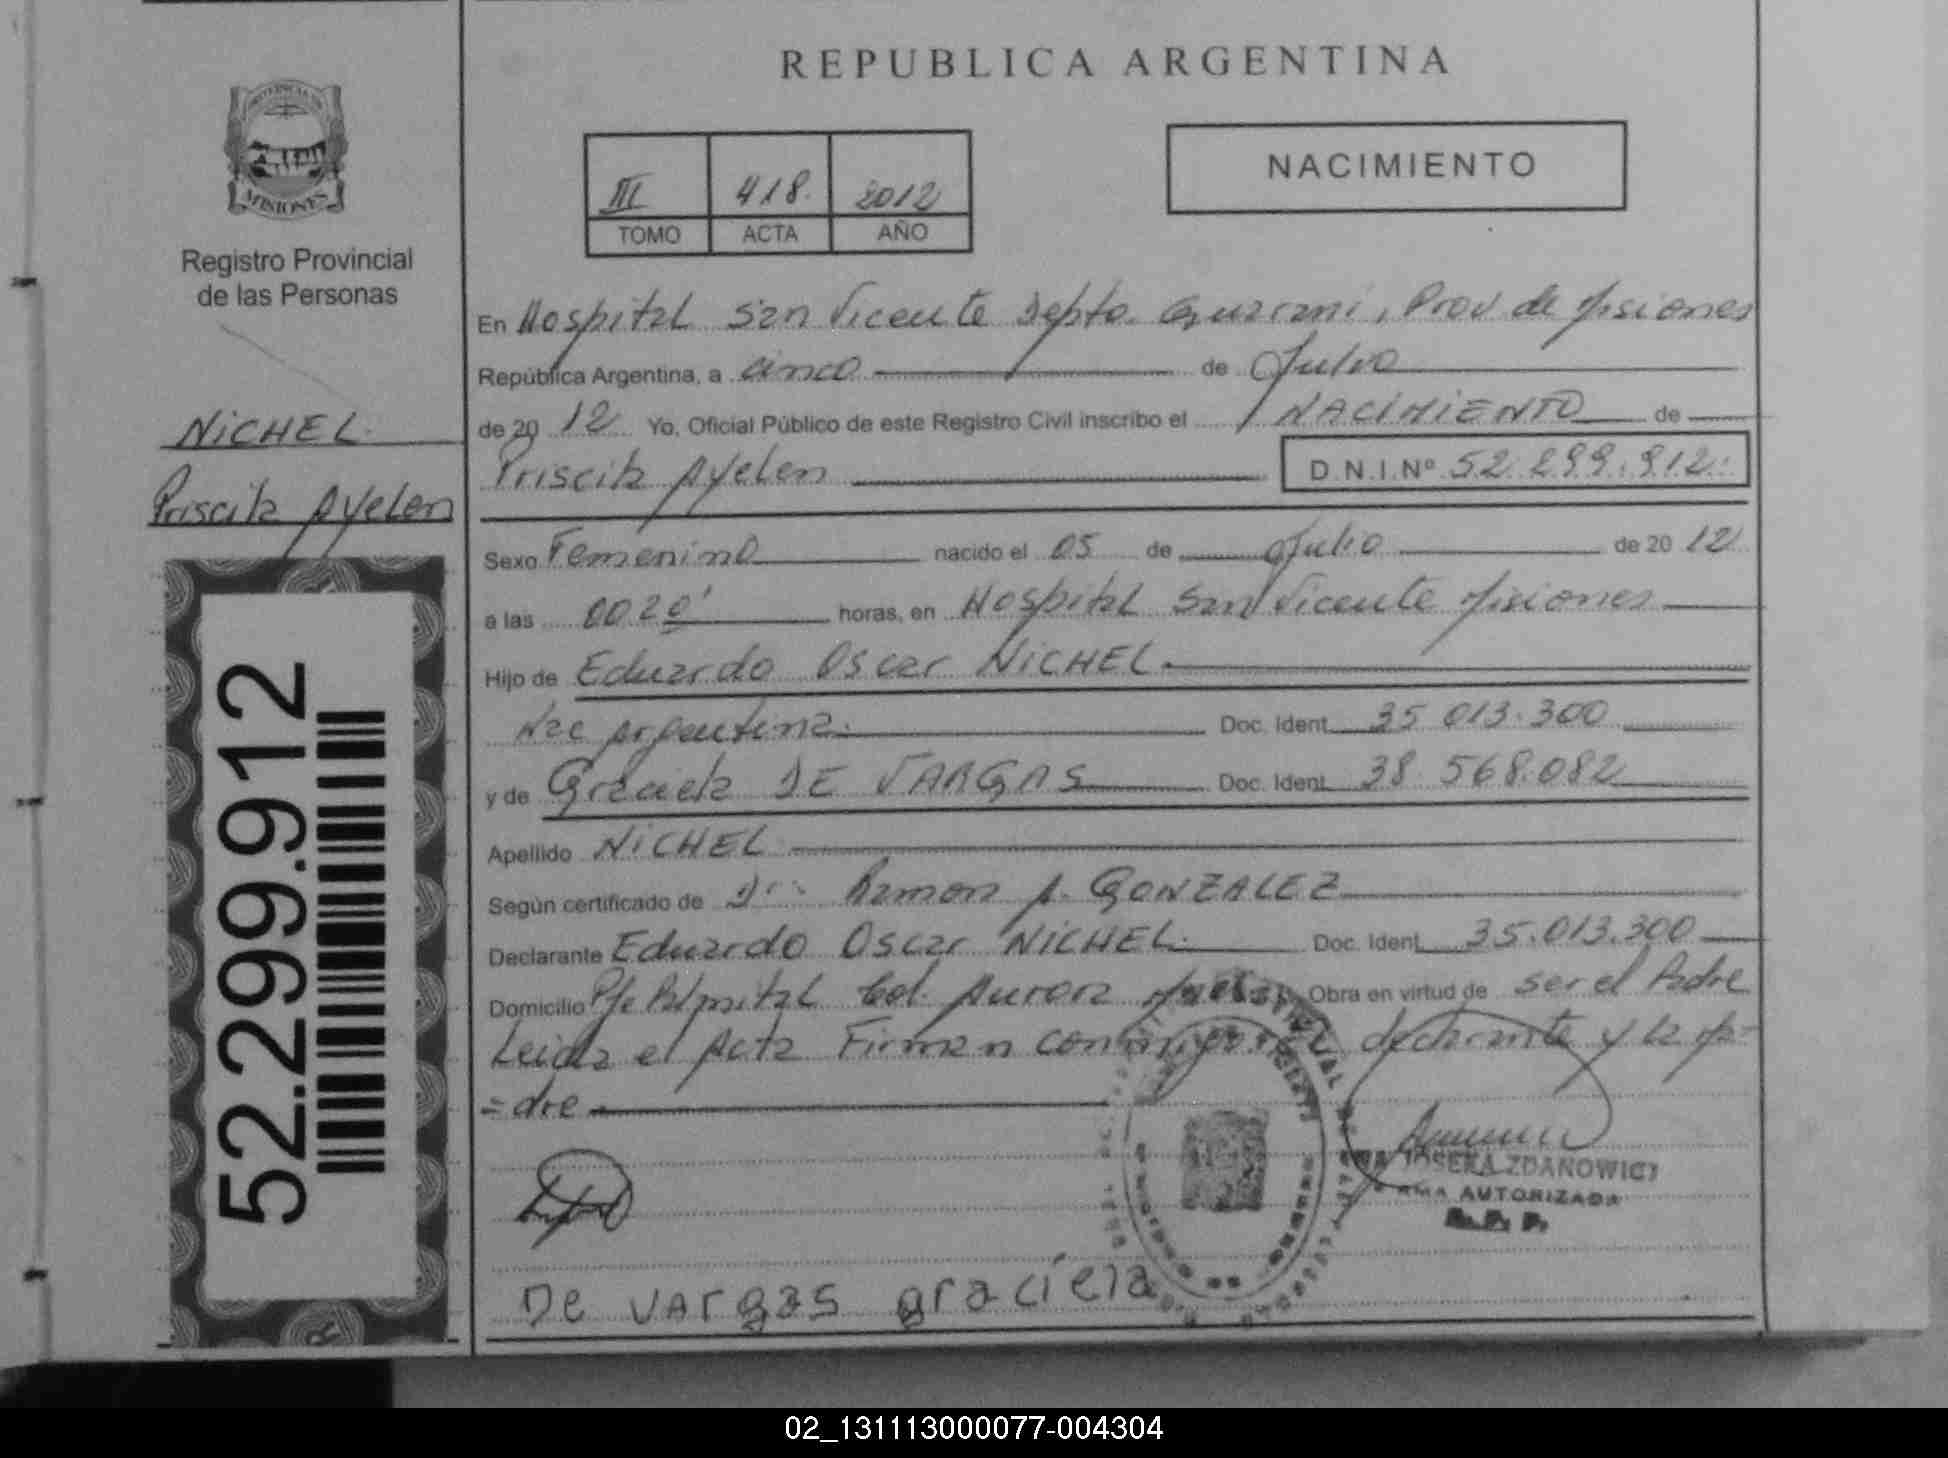 REPUBLICA ARGENTINA
PROVINCIA DE
MISIONES
Registro Provincial
de las Personas
NiCHEL
Priscila Ayelen
52.299.912
III 418. 2012
TOMO ACTA AÑO
NACIMIENTO
En Hospital San Vicente Depto. Guarani, Prov de Misiones
República Argentina, a cinco de Julio
de 20 12 Yo, Oficial Público de este Registro Civil inscribo el NACIMIENTO de
Priscila Ayelen D.N.I.Nº 52.299.912.
Sexo Femenino nacido el 05 de Julio de 20 12
a las 00 20' horas, en Hospital San Vicente Misiones
Hijo de Eduardo Oscar NiCHEL.
Nac Argentina. Doc. Ident. 35 013.300
y de Graciela DE VARGAS Doc. Ident. 38 568.082
Apellido NiCHEL
Según certificado de Dr. Ramon A. GONZALEZ
Declarante Eduardo Oscar NiCHEL. Doc. Ident. 35.013.300
Domicilio Pje Palmital Col. Aurora Obra en virtud de ser el Padre
Leida el Acta Firman conmigo el declarante y la ma-
=dre
JOSEFA ZDANOWICZ
FIRMA AUTORIZADA
R. P. P.
De vargas graciela
02_131113000077-004304